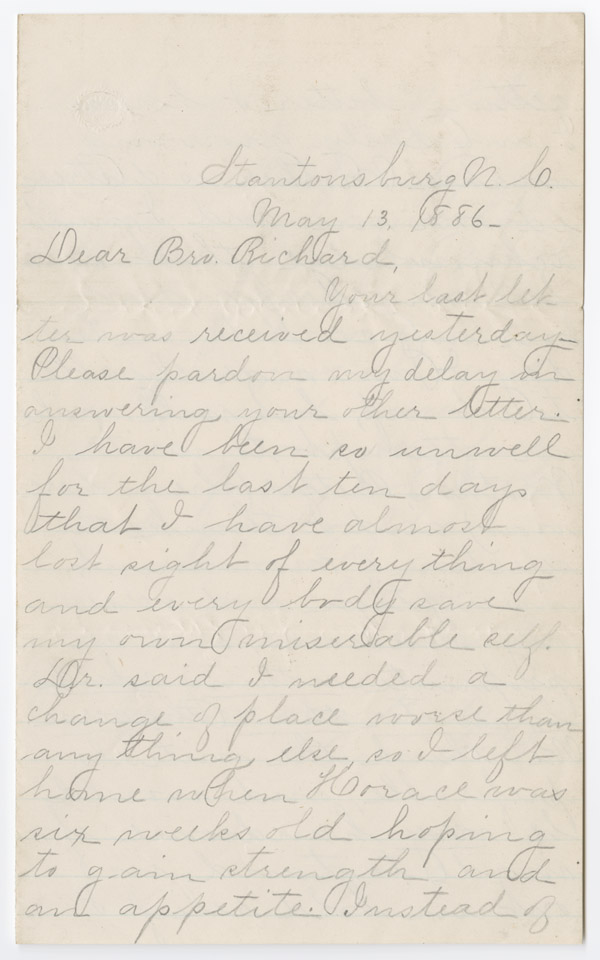 Stantonsburg N. C.
May 13, 1886-
Dear Bro. Richard,
Your last let-
ter was received yesterday-
Please pardon my delay in
answering your other letter.
I have been so unwell
for the last ten days
that I have almost
lost sight of every thing
and every body save
my own miserable self.
Dr. said I needed a
change of place worse than
any thing else, so I left
home when Horace was
six weeks old hoping
to gain strength and
an appetite. Instead of